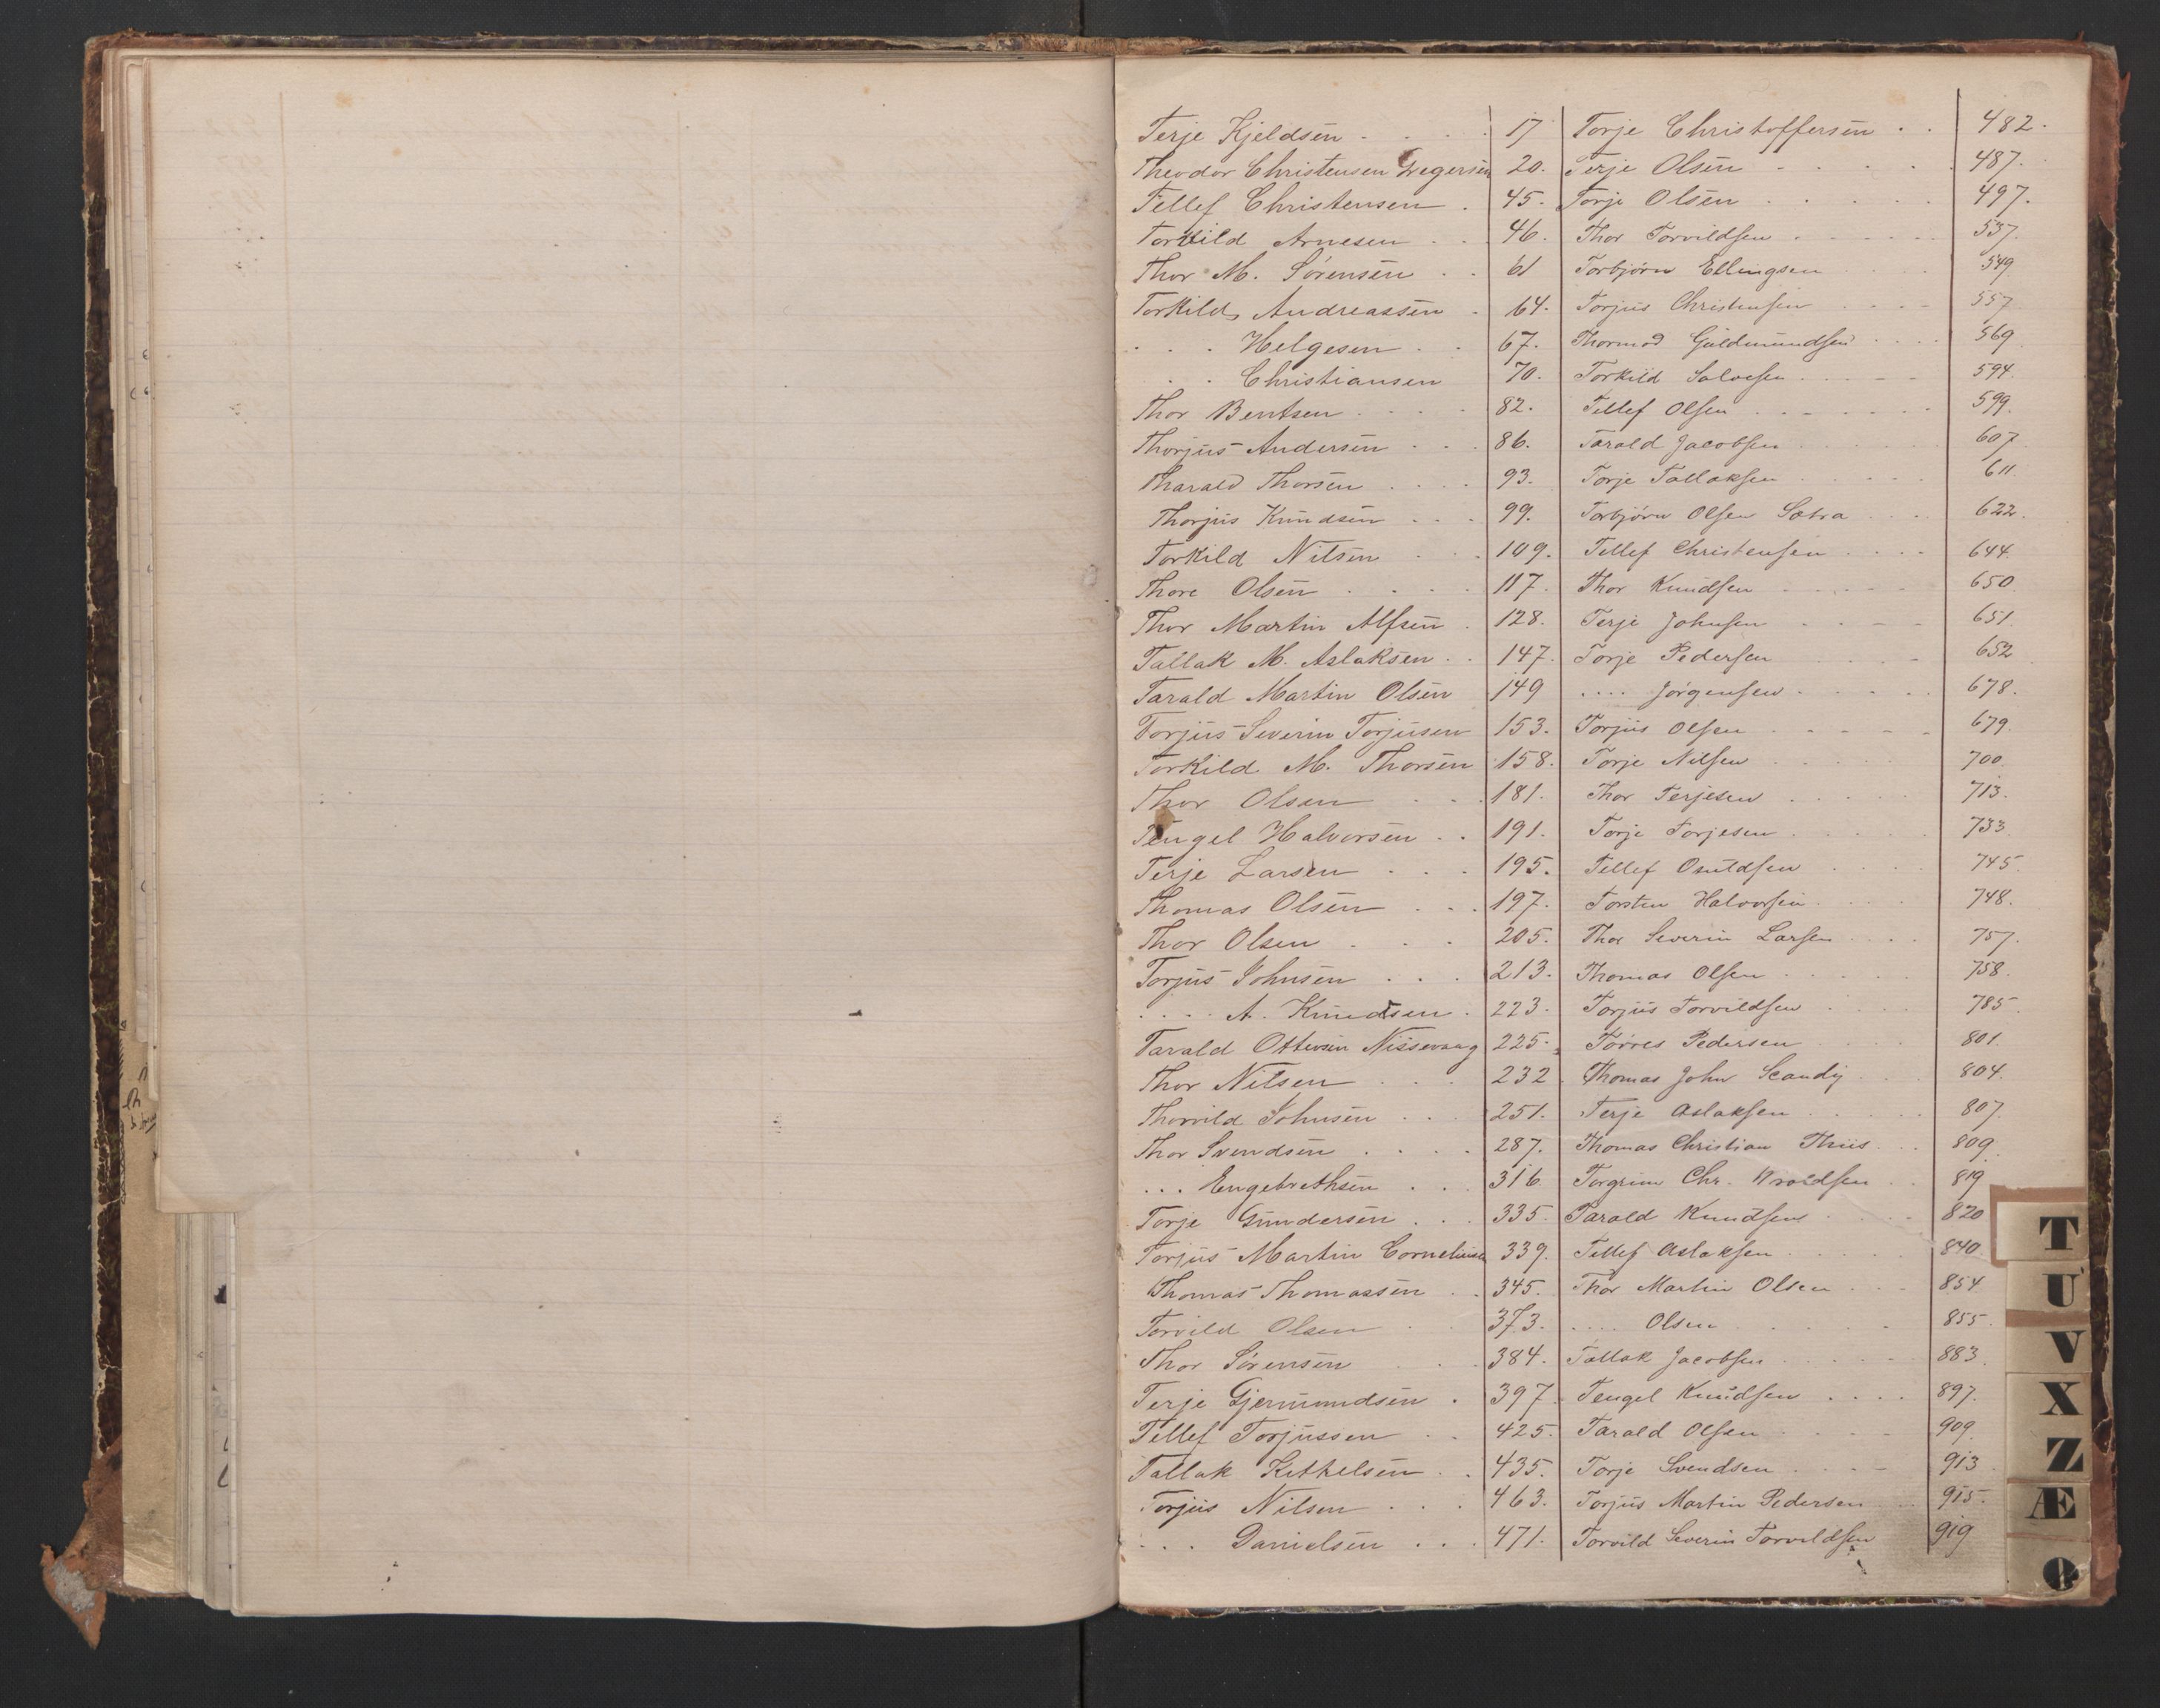 Terje Kjeldsen 17
Theodor Christensen Gregersen 20.
Tellef Christensen 45.
Torkild Arnesen 46.
Thor M. Sørensen 61
Torkild Andreassen 64.
. . . Helgesen 67.
. . Christiansen 70.
Thor Bentsen 82.
Thorjus Andersen 86.
Tharald Thorsen 93.
Thorjus Knudsen 99.
Torkild Nilsen 109.
Thore Olsen 117.
Thor Martin Alfsen 128.
Tallak M. Aslaksen 147.
Tarald Martin Olsen 149
Torjus Severin Torjusen 153.
Torkild M. Thorsen 158.
Thor Olsen 181.
Tengel Halvorsen 191.
Terje Larsen 195.
Thomas Olsen 197.
Thor Olsen 205.
Torjus Johnsen 213.
. . . . A. Knudsen 223.
Tarald Ottersen Nissevaag 225.
Thor Nilsen 232
Thorvild Johnsen 251.
Thor Svendsen 287.
. . . Engebrethsen 316.
Torje Gundersen 335.
Torjus Martin Corneliusen 339.
Thomas Thomassen 345.
Torvild Olsen 373.
Thor Sørensen 384.
Terje Gjermundsen 397
Tellef Torjussen 425.
Tallak Kethelsen 435.
Torjus Nilsen 463.
. . . Danielsen 471.
Torje Christoffersen 482.
Terje Olsen 487.
Torje Olsen 497.
Thor Torvildsen 537
Torbjørn Ellingsen 549
Torjus Christensen 557
Thormod Guldmundsen 569
Torkild Salvesen 594.
Tellef Olsen 599.
Tarald Jacobsen 607
Torje Tallaksen 611
Torbjørn Olsen Sætra 622.
Tellef Christensen 644.
Thor Knudsen 650
Terje Johnsen 651.
Torje Pedersen 652
.... Jørgensen 678.
Torjus Olsen 679.
Torje Nilsen 700.
Thor Terjesen 713.
Torje Torjesen 733.
Tellef Osuldsen 745.
Torsten Halvorsen 748.
Thor Severin Larsen 757.
Thomas Olsen 758.
Torjus Torvildsen 785
Tørres Pedersen 801.
Thomas John Scandy 804.
Terje Aslaksen 807.
Thomas Christian Thiis 809.
Torgrim Chr. Wroldsen 819
Tarald Knudsen 820
Tellef Aslaksen 840.
Thor Martin Olsen 854
.... Olsen 855
Tallak Jacobsen 883
Tengel Knudsen 897.
Tarald Olsen 909.
Torje Svendsen 913
Torjus Martin Pedersen 915.
Torvild Severin Torvildsen 919
T
U
V
X
Z
Æ
Ø